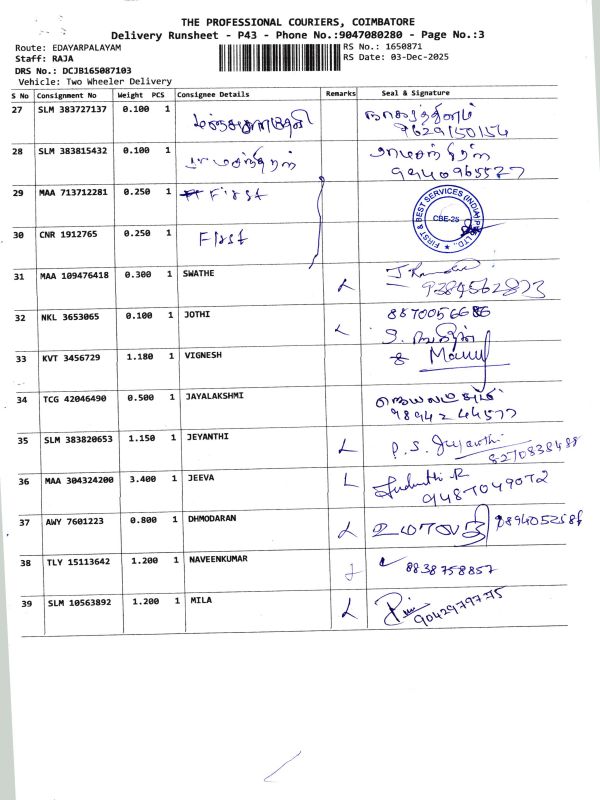 THE PROFESSIONAL COURIERS, COIMBATORE
Delivery Runsheet - P43 - Phone No.:9047080280 - Page No.:3
Route: EDAYARPALAYAM
RS No.: 1650871
Staff: RAJA
RS Date: 03-Dec-2025
DRS No.: DCJB165087103
Vehicle: Two Wheeler Delivery
S No Consignment No Weight PCS Consignee Details Remarks Seal & Signature
27 SLM 383727137 0.100 1
9629150154
28 SLM 383815432 0.100 1 ராமசந்திரன் ராமசந்திரன்
9940965527
29 MAA 713712281 0.250 1 First
FIRST & BEST SERVICES (INDIA) P LTD.,
CBE-25
30 CNR 1912765 0.250 1 First
31 MAA 109476418 0.300 1 SWATHE
9384562873
32 NKL 3653065 0.100 1 JOTHI 8870056686
33 KVT 3456729 1.180 1 VIGNESH
34 TCG 42046490 0.500 1 JAYALAKSHMI ஜெயலட்சுமி
9894244577
35 SLM 383820653 1.150 1 JEYANTHI P. S. Jeyanthi
8270838488
36 MAA 304324200 3.400 1 JEEVA
9487049072
37 AWY 7601223 0.800 1 DHMODARAN உமாபதி
38 TLY 15113642 1.200 1 NAVEENKUMAR 8838758857
39 SLM 10563892 1.200 1 MILA
9042979775